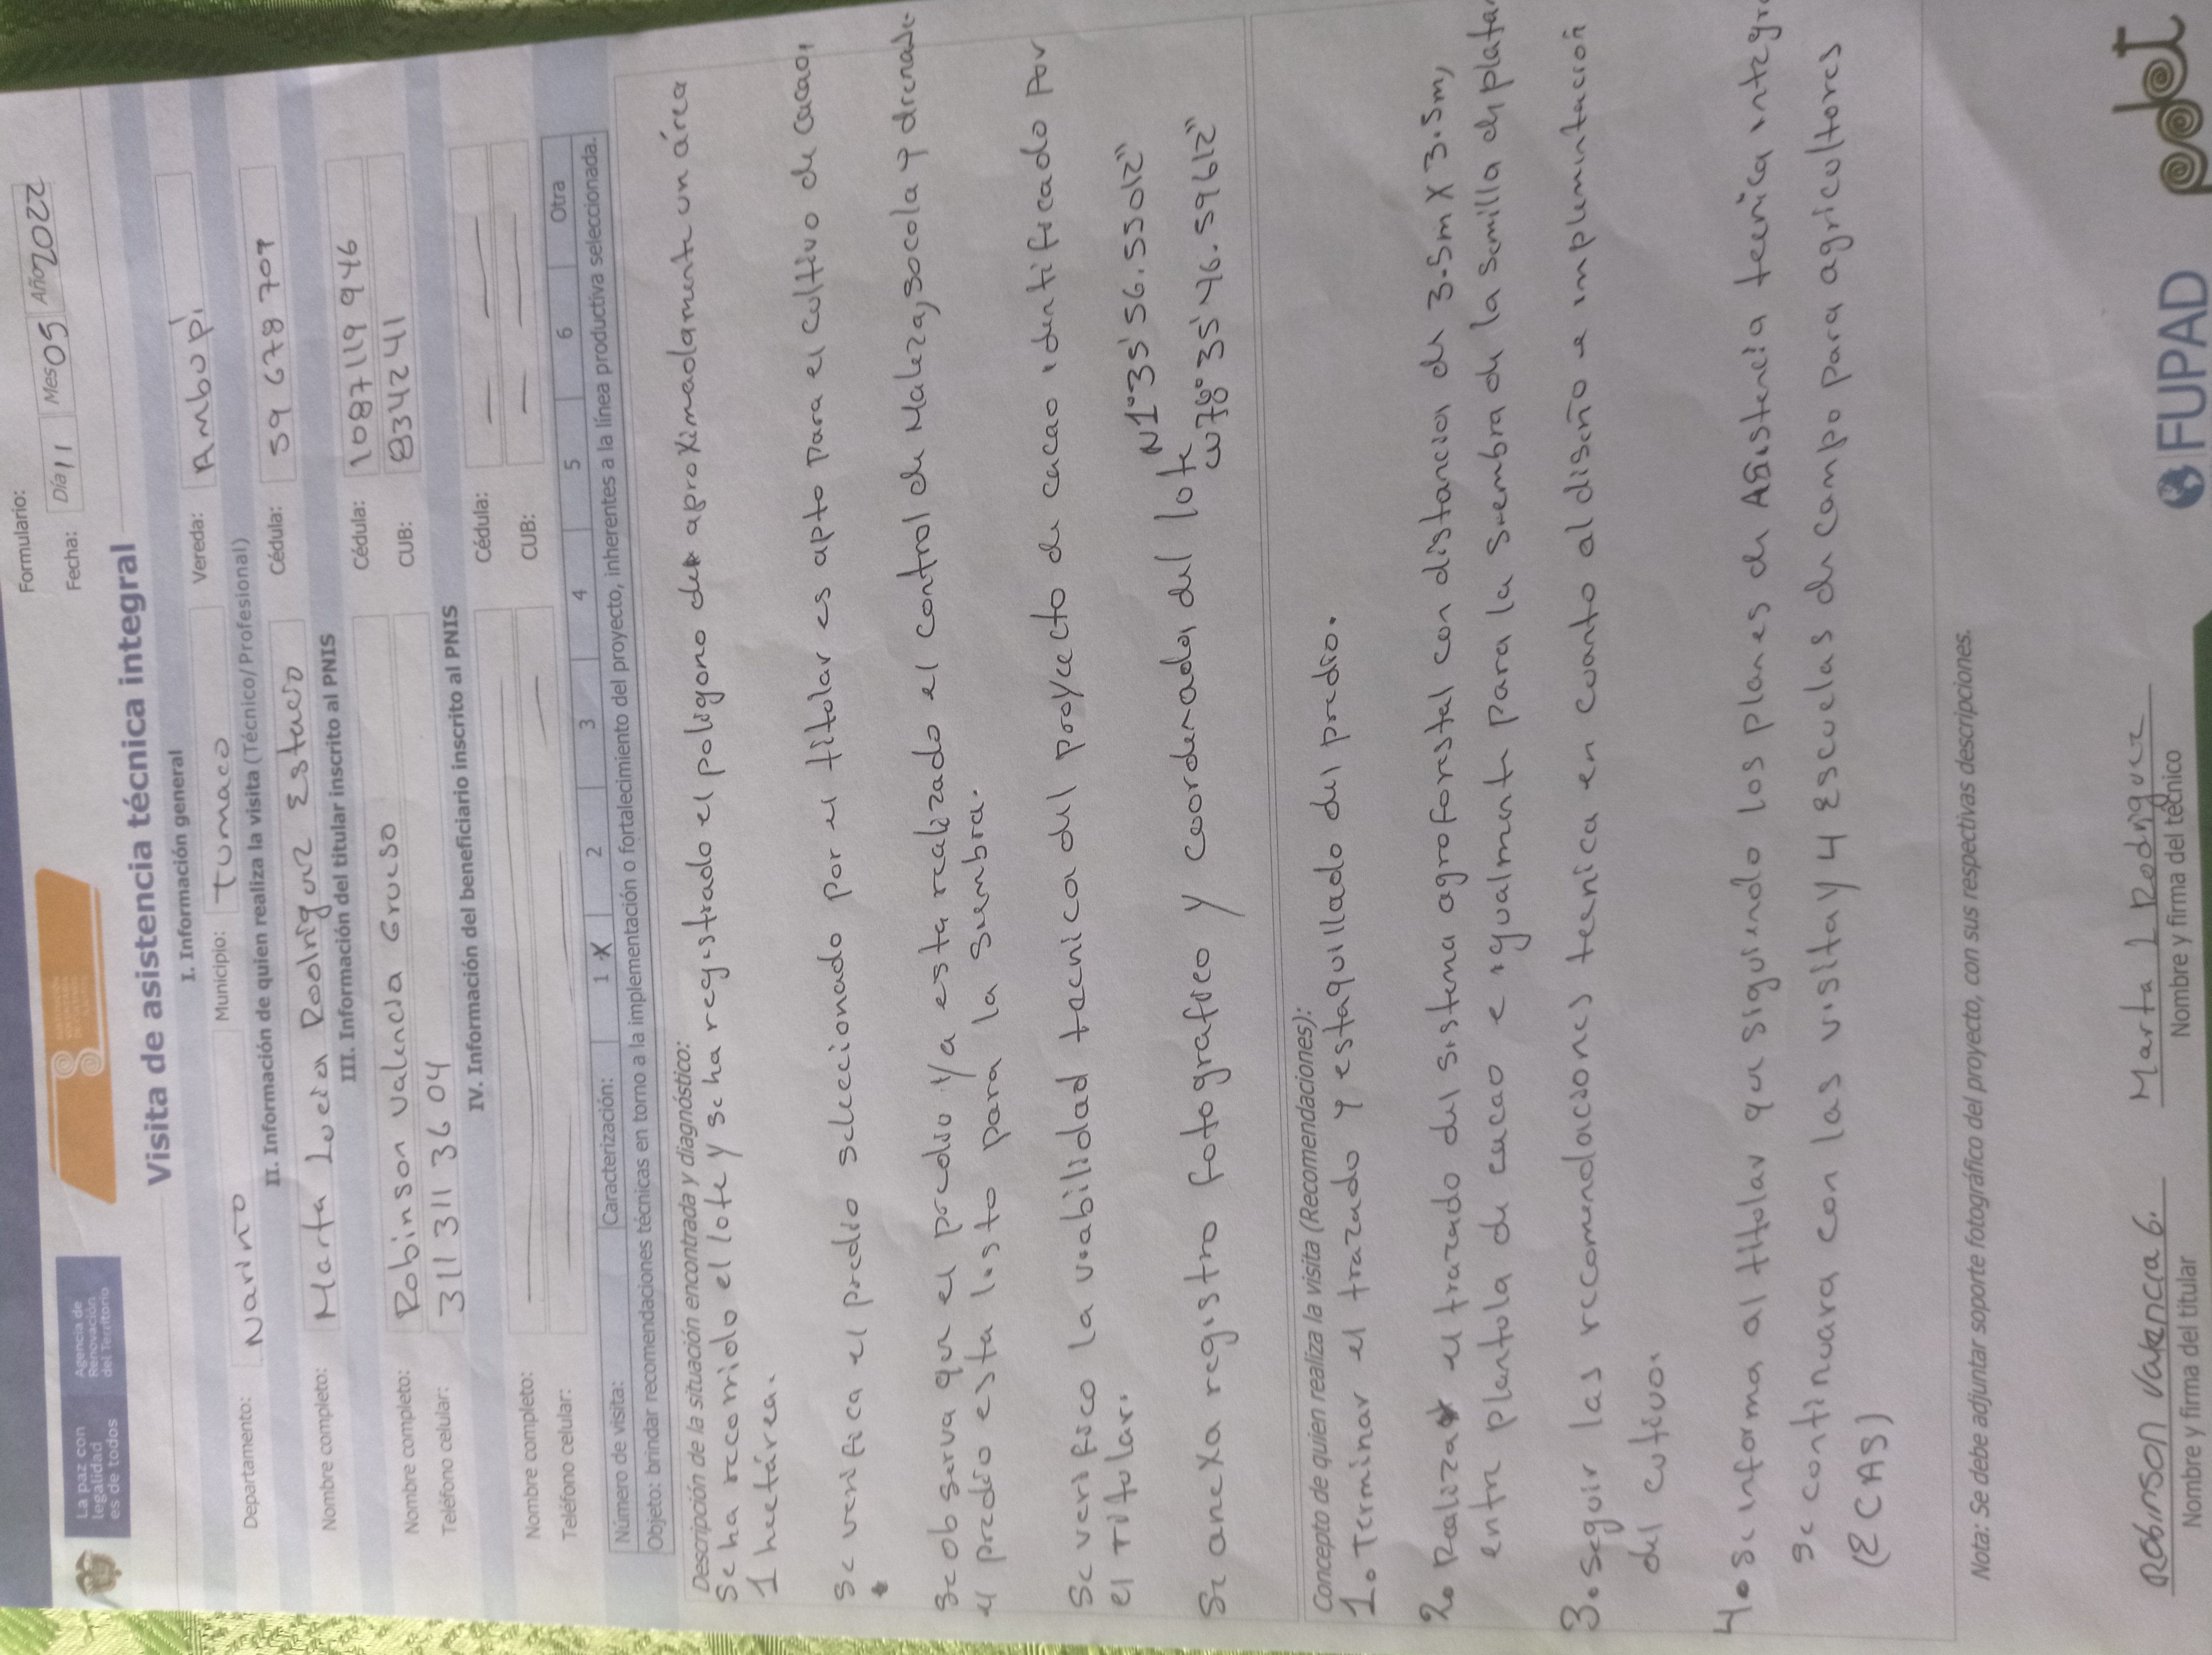 La paz con
legalidad
es de todos
Agencia de
Renovación
del Territorio
Formulario:
Fecha: Día 11 Mes 05 Año 2022
Visita de asistencia técnica integral
I. Información general
Departamento: Nariño Municipio: Tumaco Vereda: Ambupi
II. Información de quien realiza la visita (Técnico/Profesional)
Nombre completo: Marta Lucia Rodriguez Estacio Cédula: 59 678 709
III. Información del titular inscrito al PNIS
Nombre completo: Robinson Valencia Grueso Cédula: 1087119 946
Teléfono celular: 311 311 36 04 CUB: 8334241
IV. Información del beneficiario inscrito al PNIS
Nombre completo: Cédula: — —
Teléfono celular: CUB: — —
Número de visita: Caracterización: 1 X 2 3 4 5 6 Otra
Objeto: brindar recomendaciones técnicas en torno a la implementación o fortalecimiento del proyecto, inherentes a la línea productiva seleccionada.
Descripción de la situación encontrada y diagnóstico:
Se ha recorrido el lote y se ha registrado el poligono de aproximadamente un área
1 hectárea.
Se verifica el predio seleccionado por el titular es apto para el cultivo de cacao,
Se observa que el predio ya esta realizado el control de Maleza, socola y drenado
el predio esta listo para la siembra.
Se verifico la viabilidad tecnica del proyecto de cacao identificado por
el Titular.
Se anexa registro fotografico y coordenadas del lote N1°35'56.53012"
W78°35'46.59612"
Concepto de quien realiza la visita (Recomendaciones):
1. Terminar el trazado y estaquillado del predio.
2. Realizar el trazado del sistema agroforestal con distancia de 3.5m X 3.5m,
entre plantola de cacao e igualmente para la siembra de la semilla de platan
3. Seguir las recomendaciones tecnica en cuanto al diseño e implementación
del cutivo.
4. Se informa al titular que siguiendo los planes de Asistencia tecnica integr
se continuara con las visita y 4 Escuelas de campo para agricultores
(ECAS)
Nota: Se debe adjuntar soporte fotográfico del proyecto, con sus respectivas descripciones.
Robinson Valencia G. Marta L Rodriguez
Nombre y firma del titular Nombre y firma del técnico
FUPAD pdet